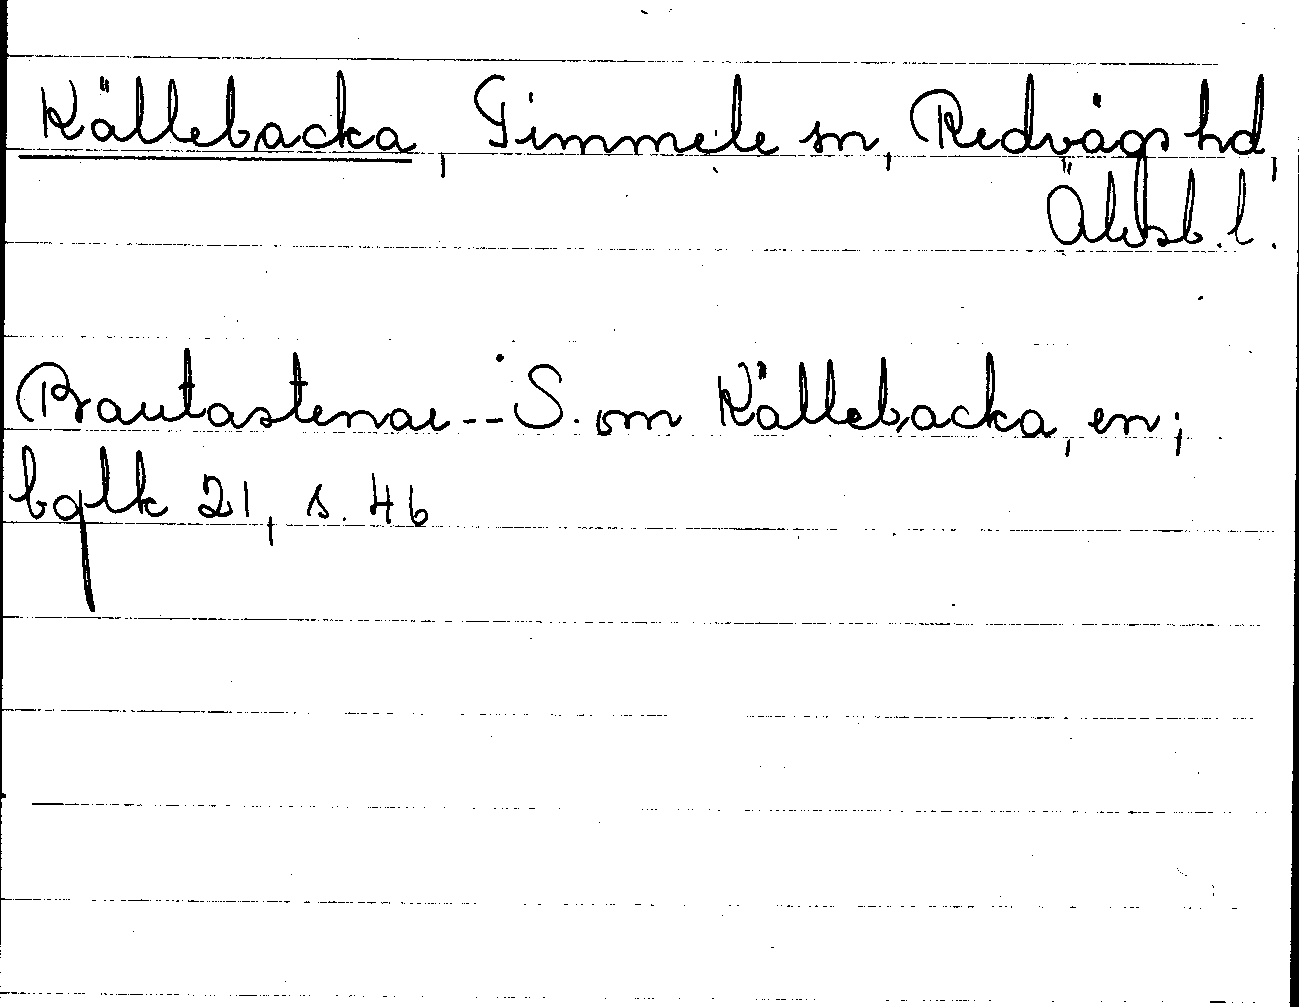 Källebacka, Timmele sn, Redvägs hd,
Älvsb. l.
Bautastenar -- S. om Källebacka, en;
bglk 21, s. 46